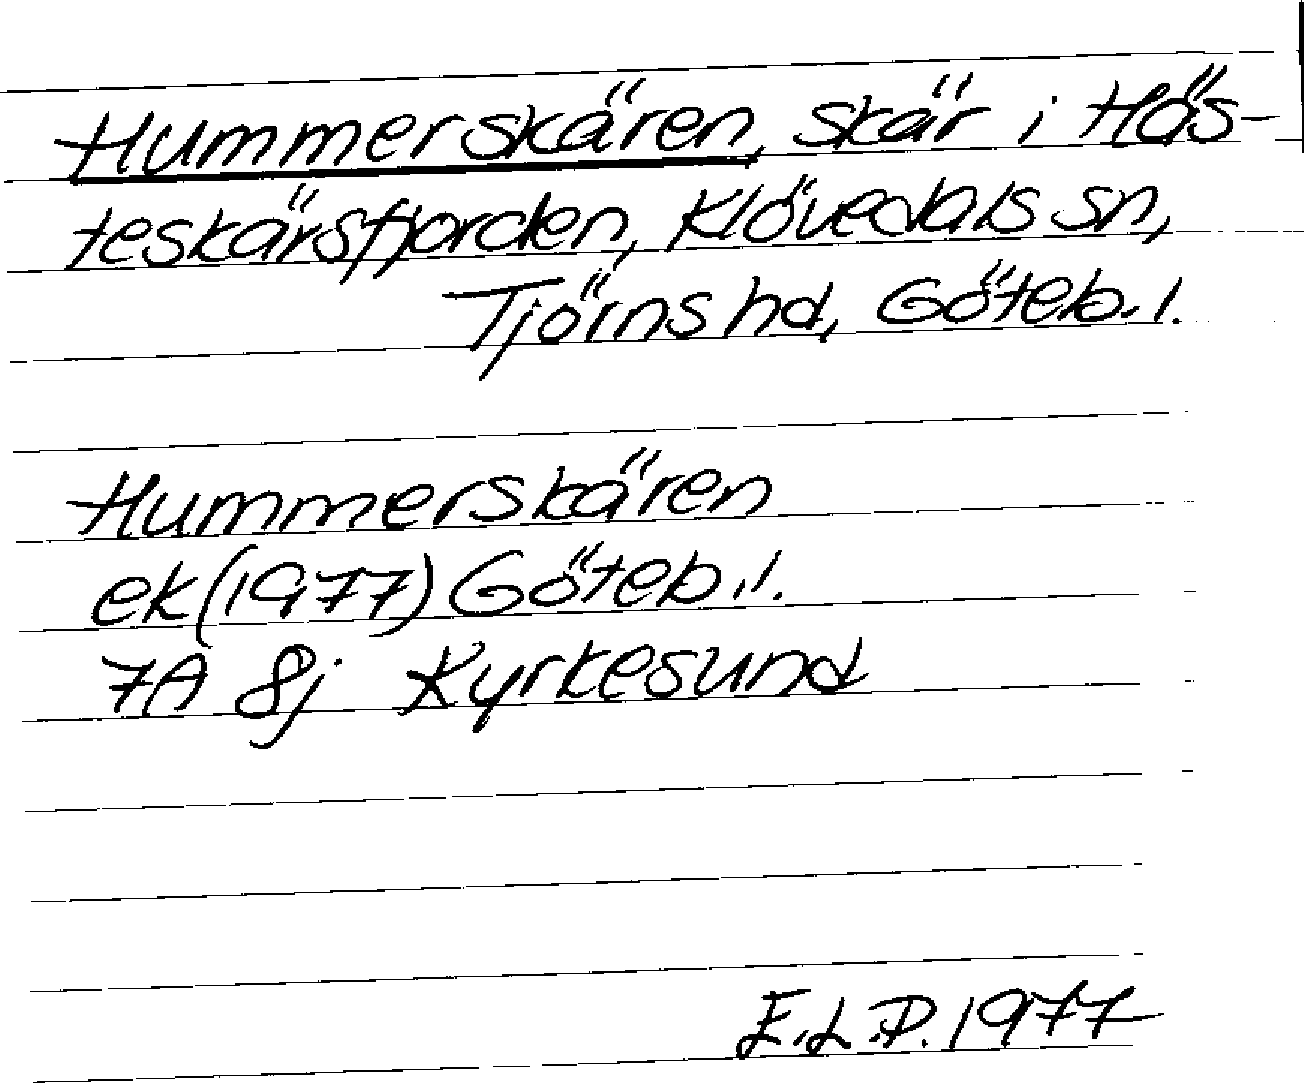 Hummerskären, skär i Häs-
teskärsfjorden, Klövedals sn,
Tjörns hd, Göteb. l.
Hummerskären
ek (1977) Göteb. l.
7A 8j Kyrkesund
E.L.P. 1977